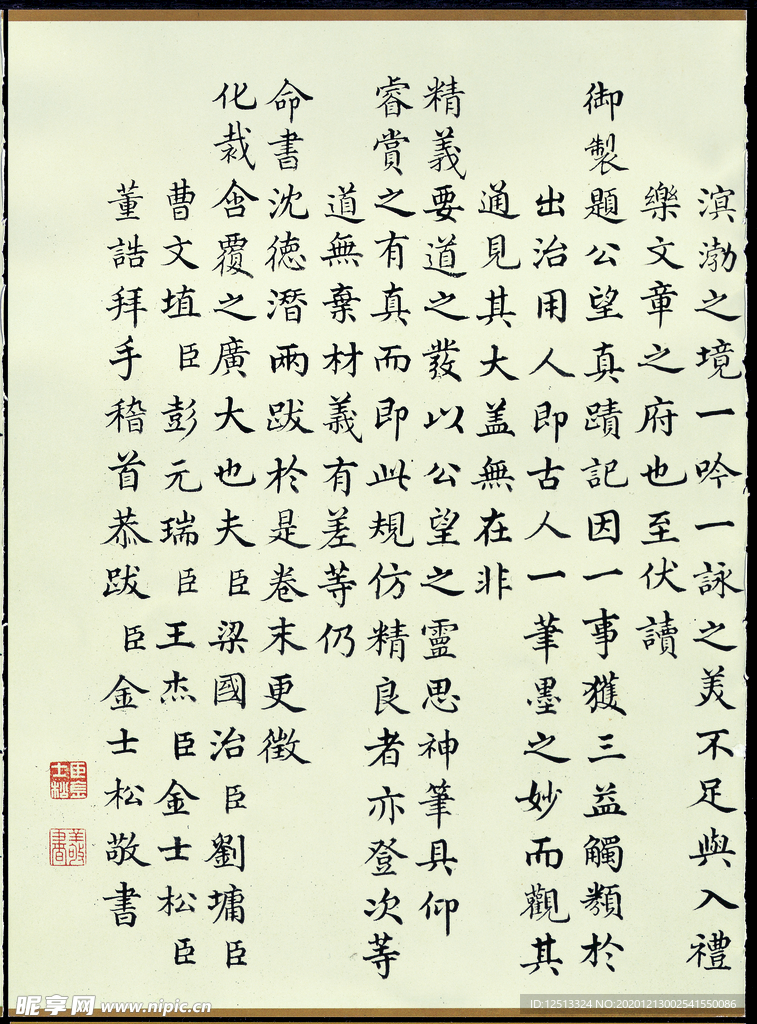 溟渤之境一吟一詠之美不足與入禮
樂文章之府也至伏讀
御製題公望真蹟記因一事獲三益觸類於
出治用人即古人一筆墨之妙而觀其
通見其大盖無在非
精義要道之發以公望之靈思神筆具仰
睿賞之有真而即此規仿精良者亦登次等
道無棄材義有差等仍
命書沈德潛兩跋於是卷末更徵
化裁含覆之廣大也夫臣梁國治臣劉墉臣
曹文埴臣彭元瑞臣王杰臣金士松臣
董誥拜手稽首恭跋臣金士松敬書
臣金士松
敬書
昵享网 www.nipic.cn
ID:12513324 NO:20201213002541550086